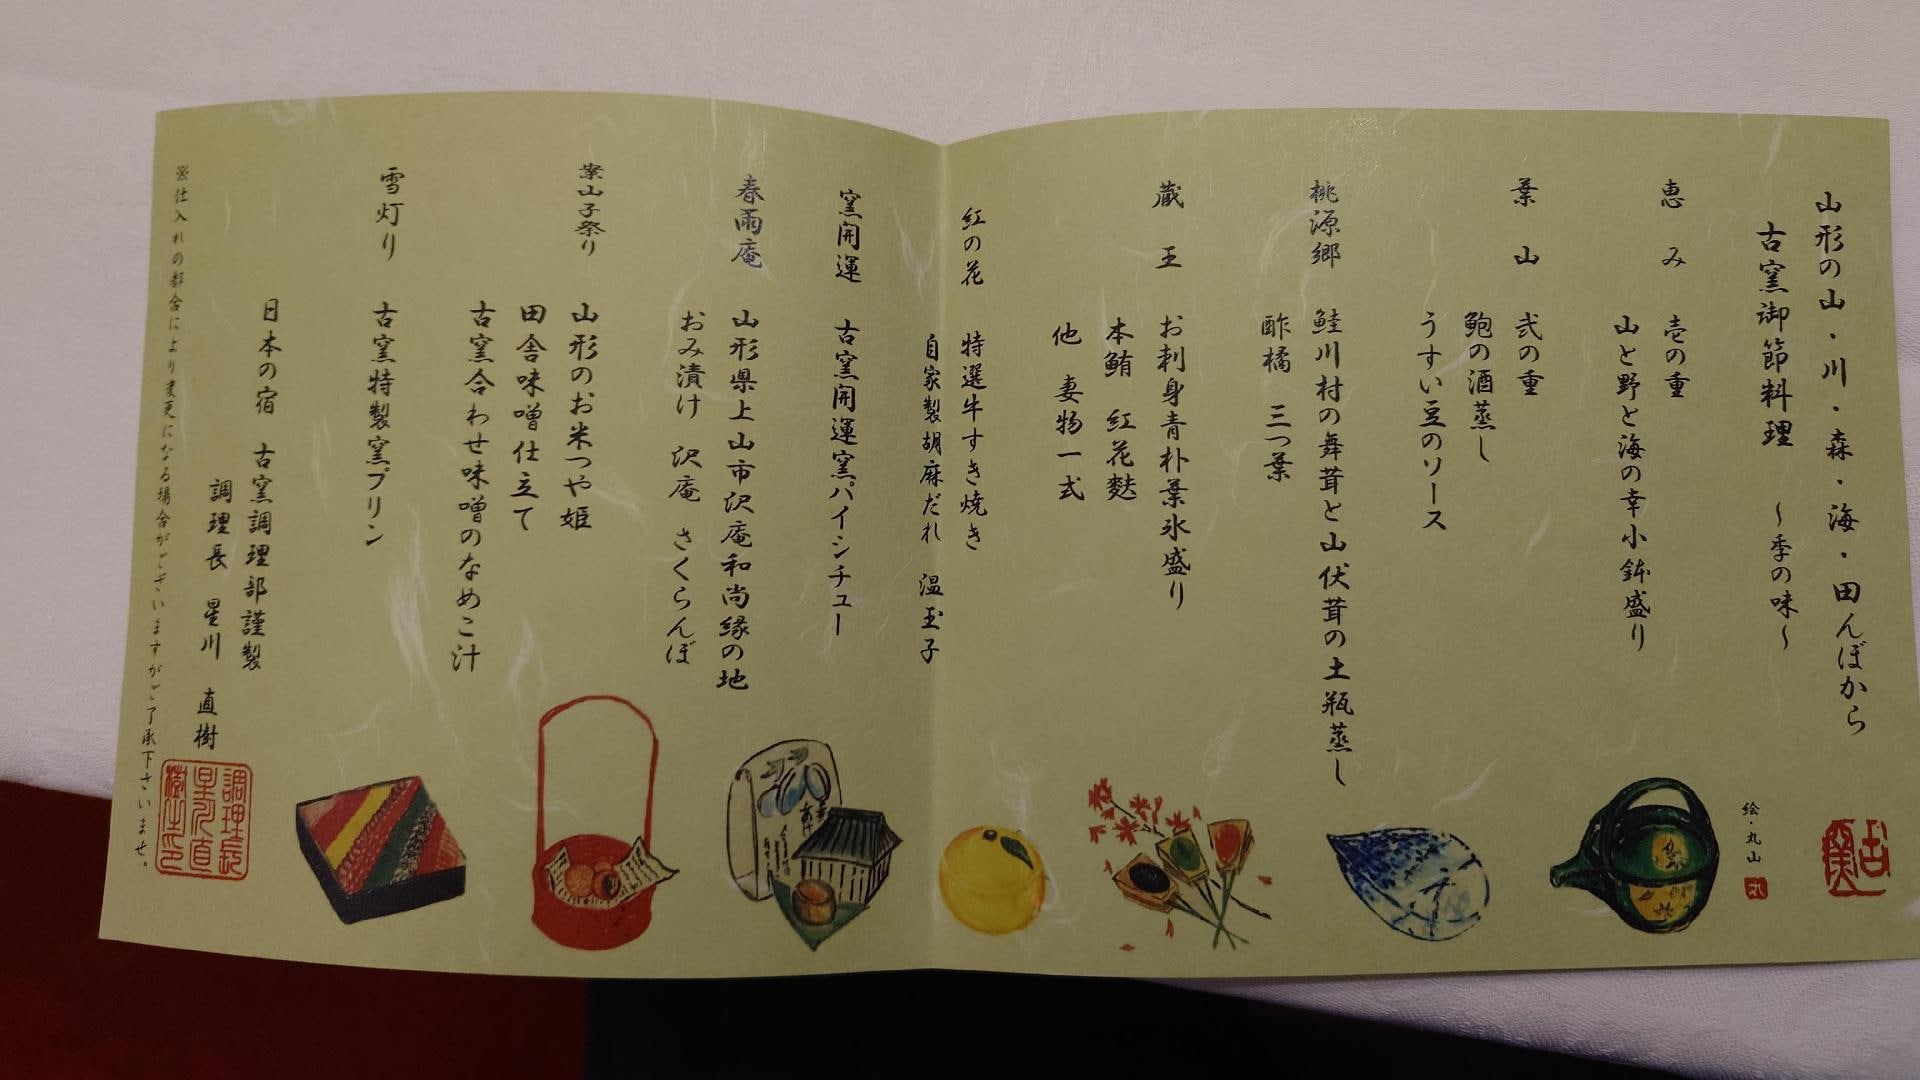 山形の山・川・森・海・田んぼから
古窯御節料理 ～季の味～
恵み 壱の重
山と野と海の幸小鉢盛り
葉山 弐の重
鮑の酒蒸し
うすい豆のソース
桃源郷 鮭川村の舞茸と山伏茸の土瓶蒸し
酢橘 三つ葉
蔵王 お刺身青朴葉氷盛り
本鮪 紅花麩
他 妻物一式
紅の花 特選牛すき焼き
自家製胡麻だれ 温玉子
窯開運 古窯開運窯パイシチュー
春雨庵 山形県上山市沢庵和尚縁の地
おみ漬け 沢庵 さくらんぼ
案山子祭り 山形のお米つや姫
田舎味噌仕立て
古窯合わせ味噌のなめこ汁
雪灯り 古窯特製窯プリン
日本の宿 古窯調理部謹製
調理長 星川 直樹
※仕入れの都合により変更になる場合がございますがご了承下さいませ。
絵・丸山
古窯